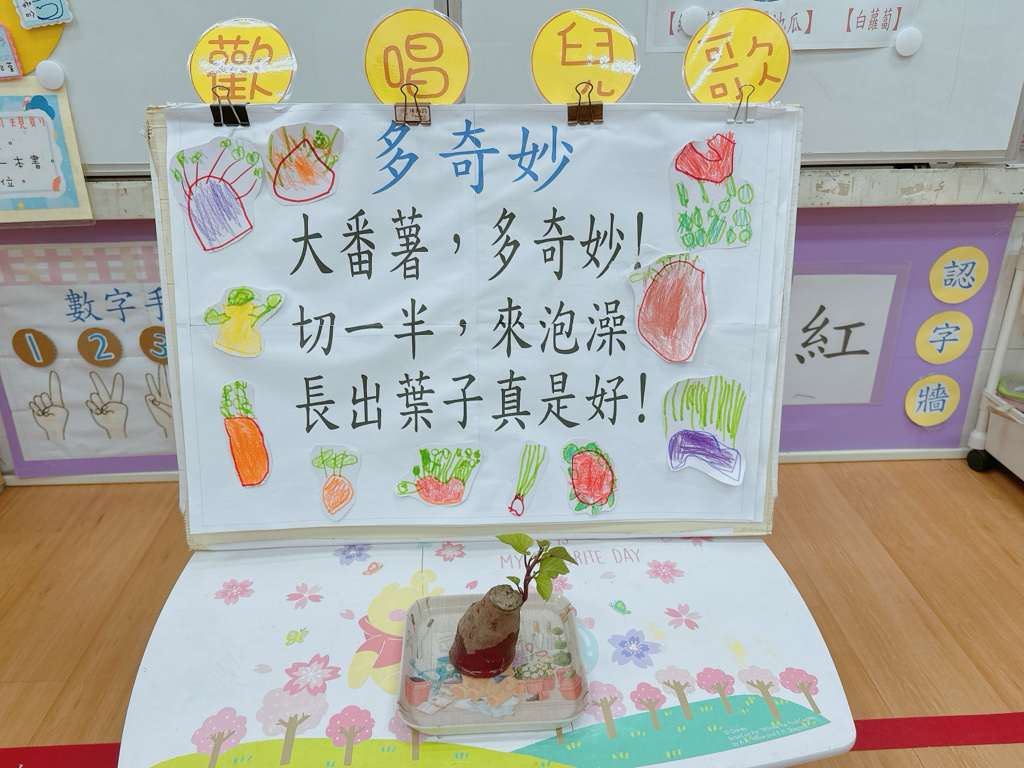 歡唱兒歌
多奇妙
大番薯，多奇妙！
切一半，來泡澡
長出葉子真是好！
地瓜】
【白蘿蔔】
一本書。
位。
數字手
1 2 3
紅
認
字
牆
MY FAVORITE DAY
© Disney